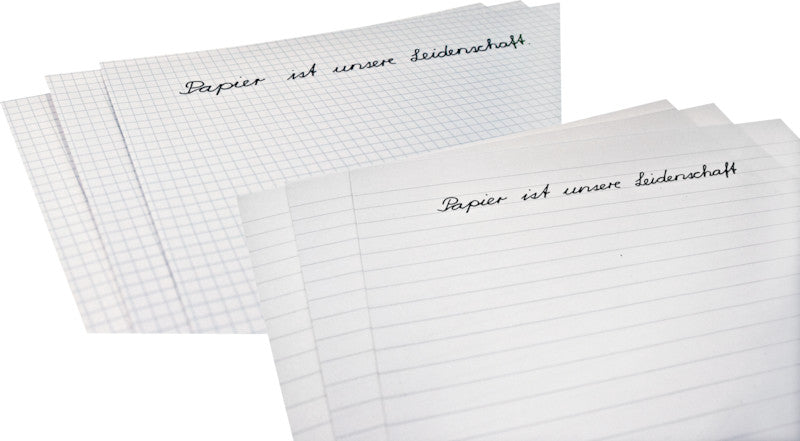 Papier ist unsere Leidenschaft.
Papier ist unsere Leidenschaft